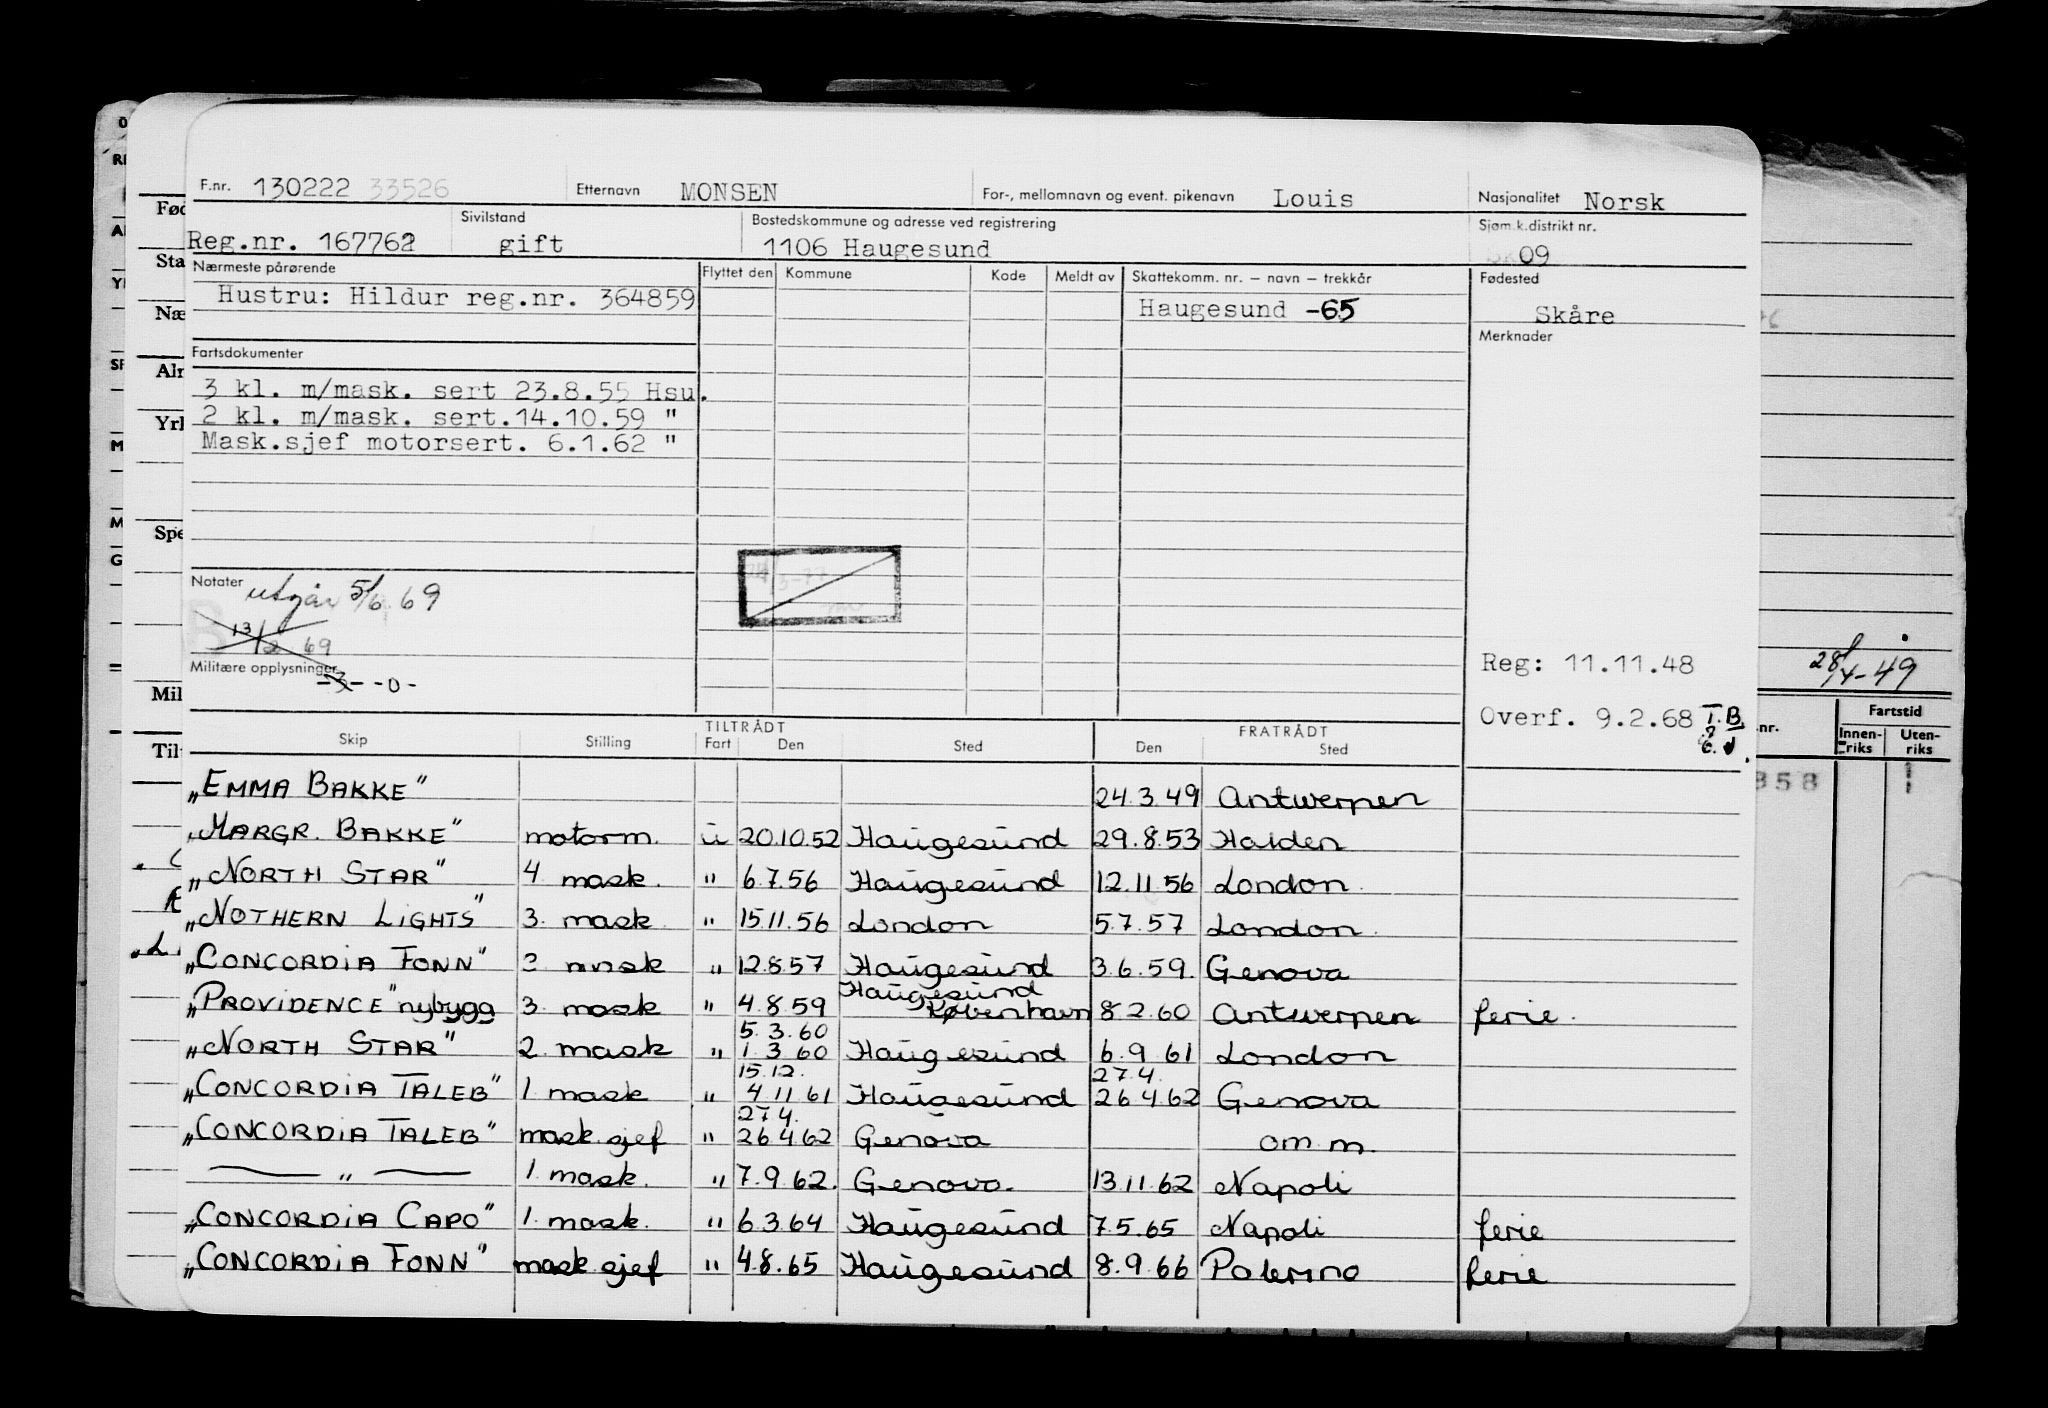 F.nr. 130222 33526 Etternavn MONSEN For-, mellomnavn og event. pikenavn Louis Nasjonalitet Norsk
Reg.nr. 167762 Sivilstand gift Bostedskommune og adresse ved registrering 1106 Haugesund Sjøm.k.distrikt nr. 09
Nærmeste pårørende Flyttet den Kommune Kode Meldt av Skattekomm. nr. – navn – trekkår Fødested
Hustru: Hildur reg.nr. 364859 Haugesund -65 Skåre
Merknader
Fartsdokumenter
3 kl. m/mask. sert 23.8.55 Hsu.
2 kl. m/mask. sert. 14.10.59 "
Mask.sjef motorsert. 6.1.62 "
Notater utgår 5/6 69
13/2 69
Militære opplysninger -3- -0-
Reg: 11.11.48
28/4-49
Overf. 9.2.68 T.B.
TILTRÅDT FRATRÅDT
Skip Stilling Fart Den Sted Den Sted
„EMMA BAKKE" 24.3.49 Antwerpen
„MARGR. BAKKE" motorm. u 20.10.52 Haugesund 29.8.53 Halden
„NORTH STAR" 4 mask. " 6.7.56 Haugesund 12.11.56 London.
„NOTHERN LIGHTS" 3. mask. " 15.11.56 London 5.7.57 London.
„CONCORDIA FONN" mask " 12.8.57 Haugesund 3.6.59. Genova
„PROVIDENCE" nybygg 3. mask " 4.8.59 Haugesund København 8.2.60 Antwerpen ferie.
5.3.60
„NORTH STAR" 2. mask " 1.3.60 Haugesund 6.9.61 London
15.12. 27.4.
„CONCORDIA TALEB" 1 mask " 4.11.61 Haugesund 26.4.62 Genova
27.4.
„CONCORDIA TALEB" mask.sjef " 26.4.62 Genova om m.
— " — 1. mask. " 7.9.62. Genova. 13.11.62 Napoli
„CONCORDIA CAPO" 1. mask. " 6.3.64 Haugesund 7.5.65 Napoli ferie
„CONCORDIA FONN" mask sjef " 4.8.65 Haugesund 8.9.66 Palermo ferie
Fartstid
Innenriks
Utenriks